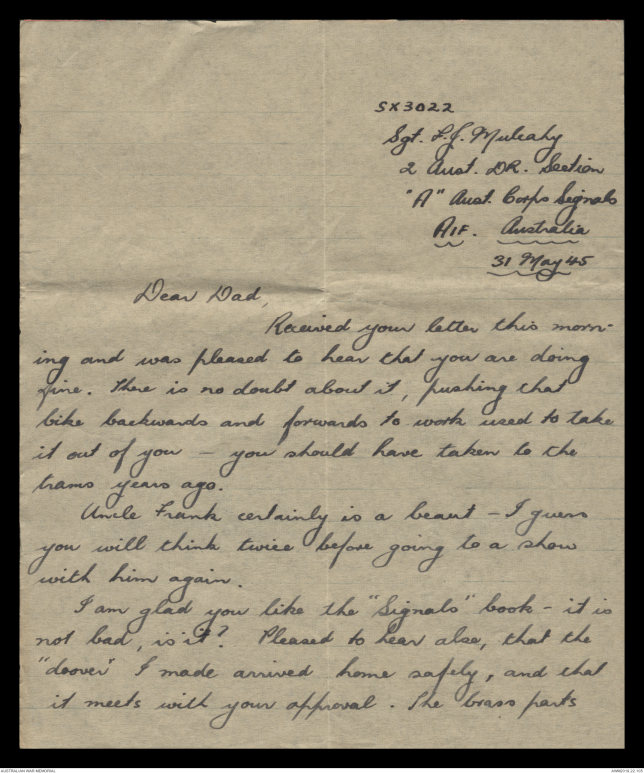 SX3022
Sgt. L.J. Mulcahy
2 Aust. DR. Section
"A" Aust. Corps Signals
AIF. Australia
31 May 45
Dear Dad,
Received your letter this morn-
ing and was pleased to hear that you are doing
fine. There is no doubt about it, pushing that
bike backwards and forwards to work used to take
it out of you – you should have taken to the
trams years ago.
Uncle Frank certainly is a beaut – I guess
you will think twice before going to a show
with him again.
I am glad you like the "Signals" book – it is
not bad, is it? Pleased to hear also, that the
"doover" I made arrived home safely, and that
it meets with your approval. The brass parts
AUSTRALIAN WAR MEMORIAL